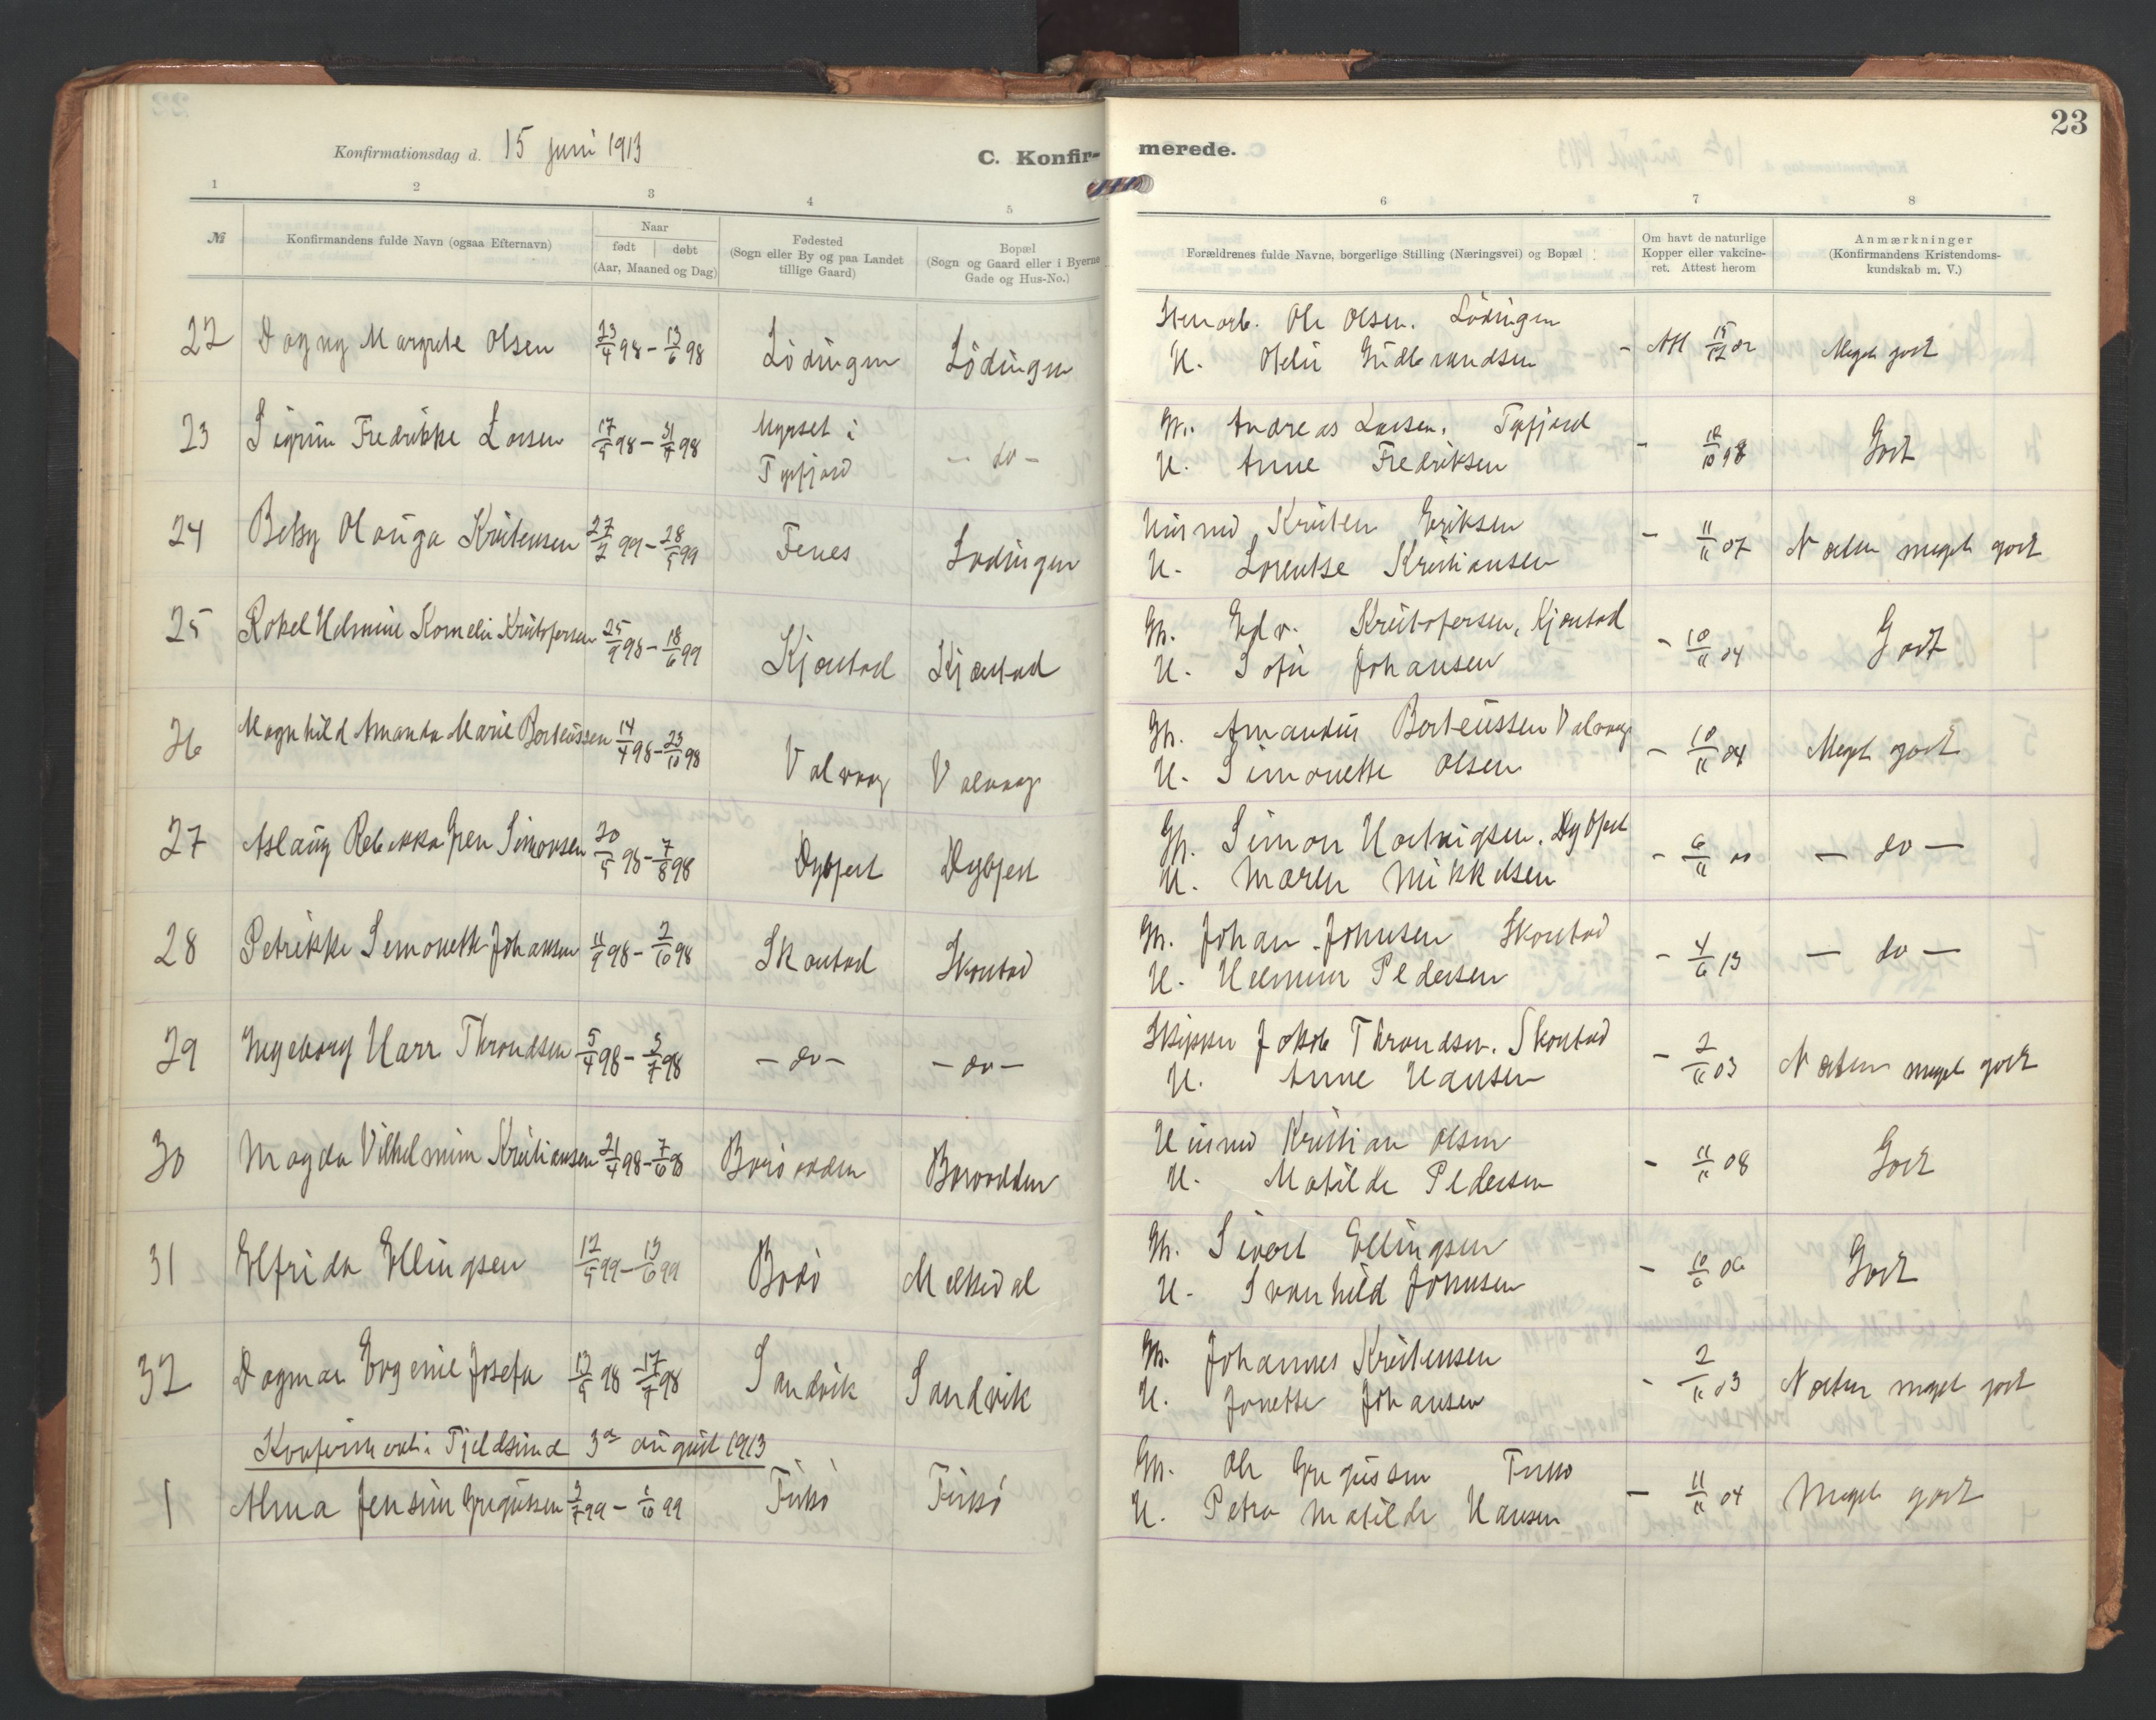 23
Konfirmationsdag d. 15 juni 1913
C. Konfir- merede.
1 2 3 4 5 6 7 8
№ Konfirmandens fulde Navn (ogsaa Efternavn) Naar født døbt (Aar, Maaned og Dag) Fødested (Sogn eller By og paa Landet tillige Gaard) Bopæl (Sogn og Gaard eller i Byerne Gade og Hus-No.) Forældrenes fulde Navne, borgerlige Stilling (Næringsvei) og Bopæl Om havt de naturlige Kopper eller vakcineret. Attest herom Anmærkninger (Konfirmandens Kristendomskundskab m. V.)
22 Dagny Margrete Olsen 23/4 98 – 13/6 98 Lödingen Lödingen Ole Olsen. Lödingen
H. Gudbrandsen – Att 15/12 02 Meget godt
23 Sigrun Fredrikke Larsen 17/5 98 – 31/7 98 Myrset i Tysfjord – do – Gb. Andreas Larsen. Tysfjord
H. Anne Fredriksen – 18/10 98 Godt
24 Betsy Olauga Kristensen 27/2 99 – 28/5 99 Fenes Lødingen Husmd Kristen Eriksen
H. Lorentse Kristiansen – 11/11 07 Næsten meget godt
25 Rakel Helmine Kornelie Kristofersen 25/9 98 – 18/6 99 Kjønstad Kjønstad Gb. Edv. Kristofersen, Kjønstad
H. Sofie Johansen – 10/11 04 Godt
26 Magnhild Amanda Marie Berteussen 14/4 98 – 23/10 98 Valvaag Valvaag Gb. Amandus Berteussen Valvaag
H. Simonette Olsen – 10/11 04 Meget godt
27 Aslaug Rebekka Simonsen 20/5 98 – 7/8 98 Dybfest Dybfest Gb. Simon Hartvigsen. Dybfest
H. Maren Mikkelsen – 6/11 – do –
28 Petrikke Simonette Johansen 11/9 98 – 2/10 98 Skarstad Skarstad Gb. Johan Johnsen Skarstad
H. Helmine Pedersen – 4/6 13 – do –
29 Ingeborg Harr Throndsen 5/4 98 – 3/7 98 – do – – do – Skipper Jakob Throndsen. Skarstad
H. Anne Hansen – 2/11 03 Næsten meget godt
30 Magda Vilhelmine Kristiansen 21/4 98 – 7/6 98 Barøodden Barøodden Husmd Kristian Olsen
H. Matilde Pedersen – 11/11 08 Godt
31 Elfrida Ellingsen 12/5 99 – 13/6 99 Barø Melkedal Gb. Sivert Ellingsen
H. Svanhild Johnsen – 10/6 06 Godt
32 Dagmar Evgenie Josefa 13/5 98 – 17/7 98 Sandvik Sandvik Gb. Johannes Kristensen
H. Jonette Johansen – 2/11 03 Næsten meget godt
Konfirmerte i Fjeldsund 3de august 1913
1 Alma Jensine Gregussen 3/7 99 – 1/10 99 Fiskø Fiskø Gb. Ole Gregussen Fiskø
H. Petra Matilde Hansen – 11/11 04 Meget godt